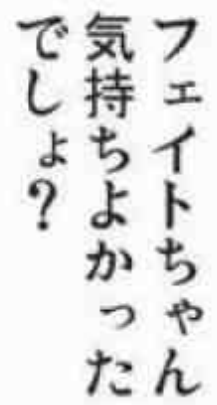 フェイトちゃん
気持ちよかった
でしょ?